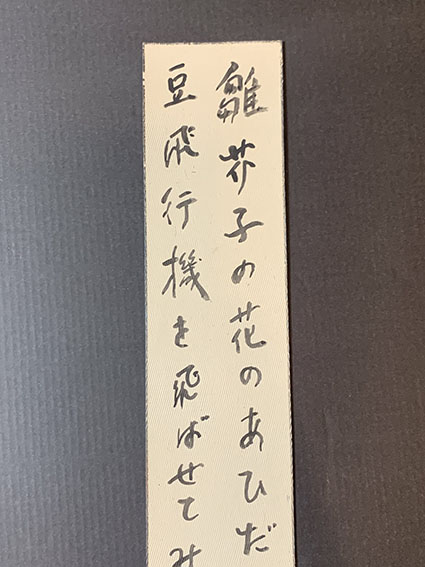 雛芥子の花のあひだ
豆飛行機を飛ばせてみ